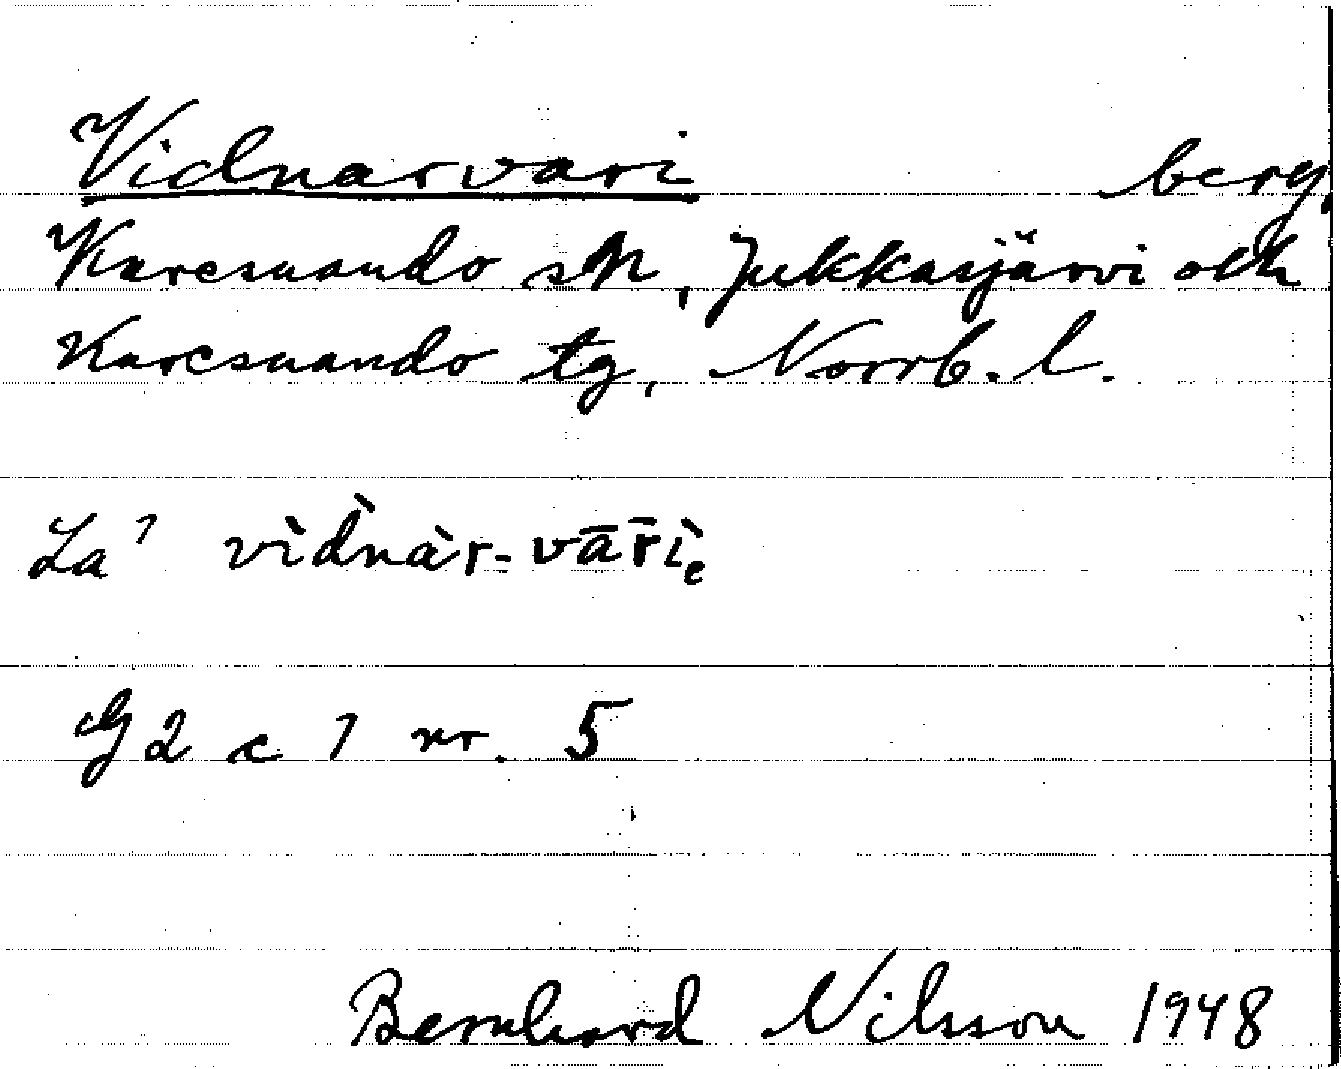 Vidnarvari berg,
Karesuando sn, Jukkasjärvi och
Karesuando tg, Norrb. l.
La 1 vìdnàr-vārī̀e
G2 c 1 nr. 5
Bernhard Nilsson 1948